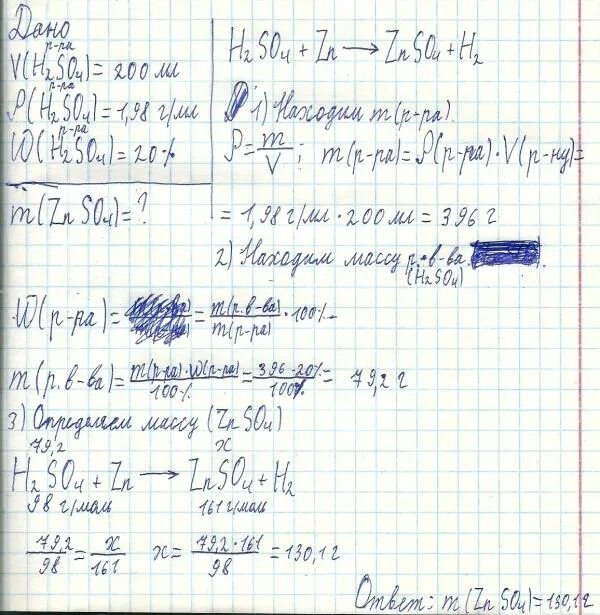 Дано
V(H₂SO₄ р-ра) = 200 мл
ρ(H₂SO₄ р-ра) = 1,98 г/мл
W(H₂SO₄ р-ра) = 20%
m(ZnSO₄) = ?
H₂SO₄ + Zn ⟶ ZnSO₄ + H₂
1) Находим m(р-ра).
ρ = m/V ; m(р-ра) = ρ(р-ра) · V(р-ну) =
= 1,98 г/мл · 200 мл = 396 г
2) Находим массу р. в-ва.
(H₂SO₄)
W(р-ра) = = m(р.в-ва)/m(р-ра) · 100%
m(р.в-ва) = m(р-ра) · W(р-ра)/100% = 396 · 20%/100% = 79,2 г
3) Определяем массу (ZnSO₄)
79,2 x
H₂SO₄ + Zn ⟶ ZnSO₄ + H₂
98 г/моль 161 г/моль
79,2/98 = x/161 x = 79,2 · 161/98 = 130,1 г
Ответ: m(ZnSO₄) = 130,1 г